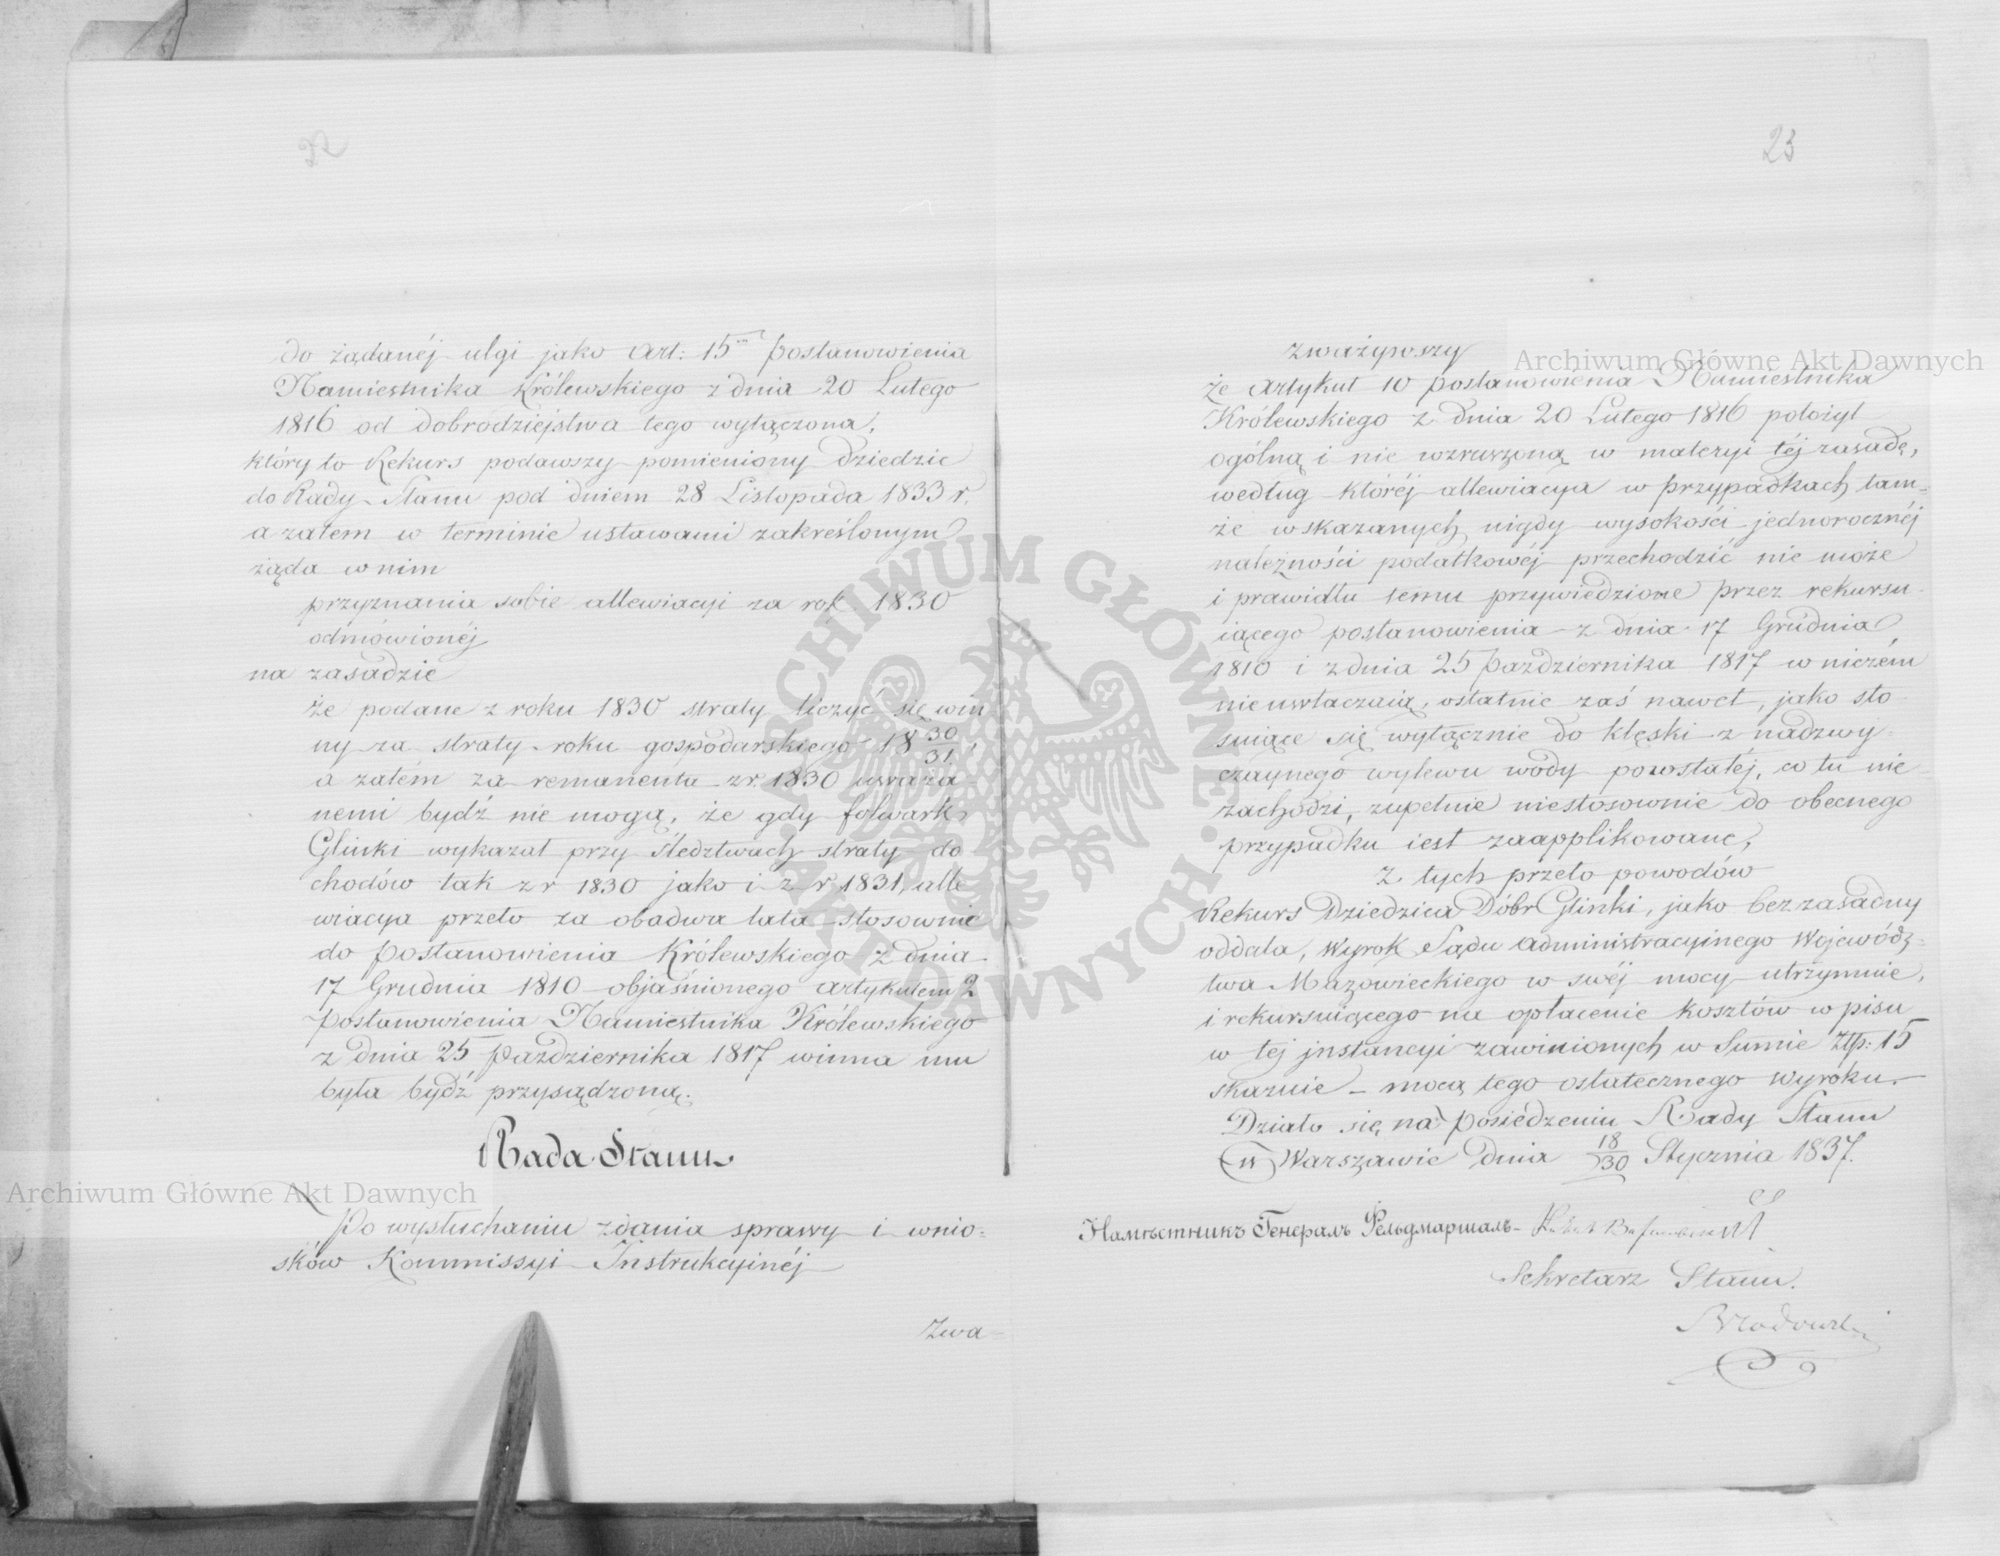 do żądanéj ulgi jako Art: 15m postanowienia
Namiestnika Królewskiego z dnia 20 Lutego
1816 od dobrodziejstwa tego wyłączona,
który to Rekurs podawszy pomieniony Dziedzic
do Rady Stanu pod dniem 28 Listopada 1833 r.
a zatem w terminie ustawami zakreślonym
żąda w nim
przyznania sobie allewiacyi za rok 1830
odmówionéj
na zasadzie
że podane z roku 1830 straty liczyć się win
ny za straty roku gospodarskiego 18 30/31
a zatém za remanenta z r. 1830 uważa
nemi bydź nie mogą, że gdy folwark
Glinki wykazał przy śledztwach straty do
chodów tak z r 1830 jako i z r 1831, alle
wiacya przeto za obadwa lata stosownie
do postanowienia Królewskiego z dnia
17 Grudnia 1810 objaśnionego artykułem 2
postanowienia Namiestnika Królewskiego
z dnia 25 Października 1817 winna mu
była bydź przysądzoną.
Rada Stanu
Po wysłuchaniu zdania sprawy i wnio-
sków Kommissyi Instrukcyinéj
Zwa-
23
zważywszy
że Artykuł 10 postanowienia Namiestnika
Królewskiego z dnia 20 Lutego 1816 położył
ogólną i nie wzruszoną w materyi téj zasadę,
według któréj allewiacya w przypadkach tam-
że wskazanych nigdy wysokości jednorocznéj
należności podatkowéj przechodzić nie może
i prawidłu temu przywiedzione przez rekursu-
iącego postanowienia z dnia 17 Grudnia
1810 i z dnia 25 Października 1817 w niczém
nie uwłaczaią, ostatnie zaś nawet, jako sto
suiące się wyłącznie do klęski z nadzwy-
czaynego wylewu wody powstałéj, co tu nie
zachodzi, zupełnie niestosownie do obecnego
przypadku iest zaapplikowane,
z tych przeto powodów
Rekurs Dziedzica Dóbr Glinki, jako bezzasadny
oddala, Wyrok Sądu Administracyinego Wojewódz-
twa Mazowieckiego w swéj mocy utrzymuie,
i rekursuiącego na opłacenie kosztów wpisu
w tej jnstancyi zawinionych w Summie Złp: 15
skazuie – mocą tego ostatecznego Wyroku.
Działo się na Posiedzeniu Rady Stanu
w Warszawie dnia 18/30 Stycznia 1837.
Намѣстникъ Генералъ Фельдмаршалъ
Sekretarz Stanu.
Archiwum Główne Akt Dawnych
Archiwum Główne Akt Dawnych
ARCHIWUM GŁÓWNE AKT DAWNYCH